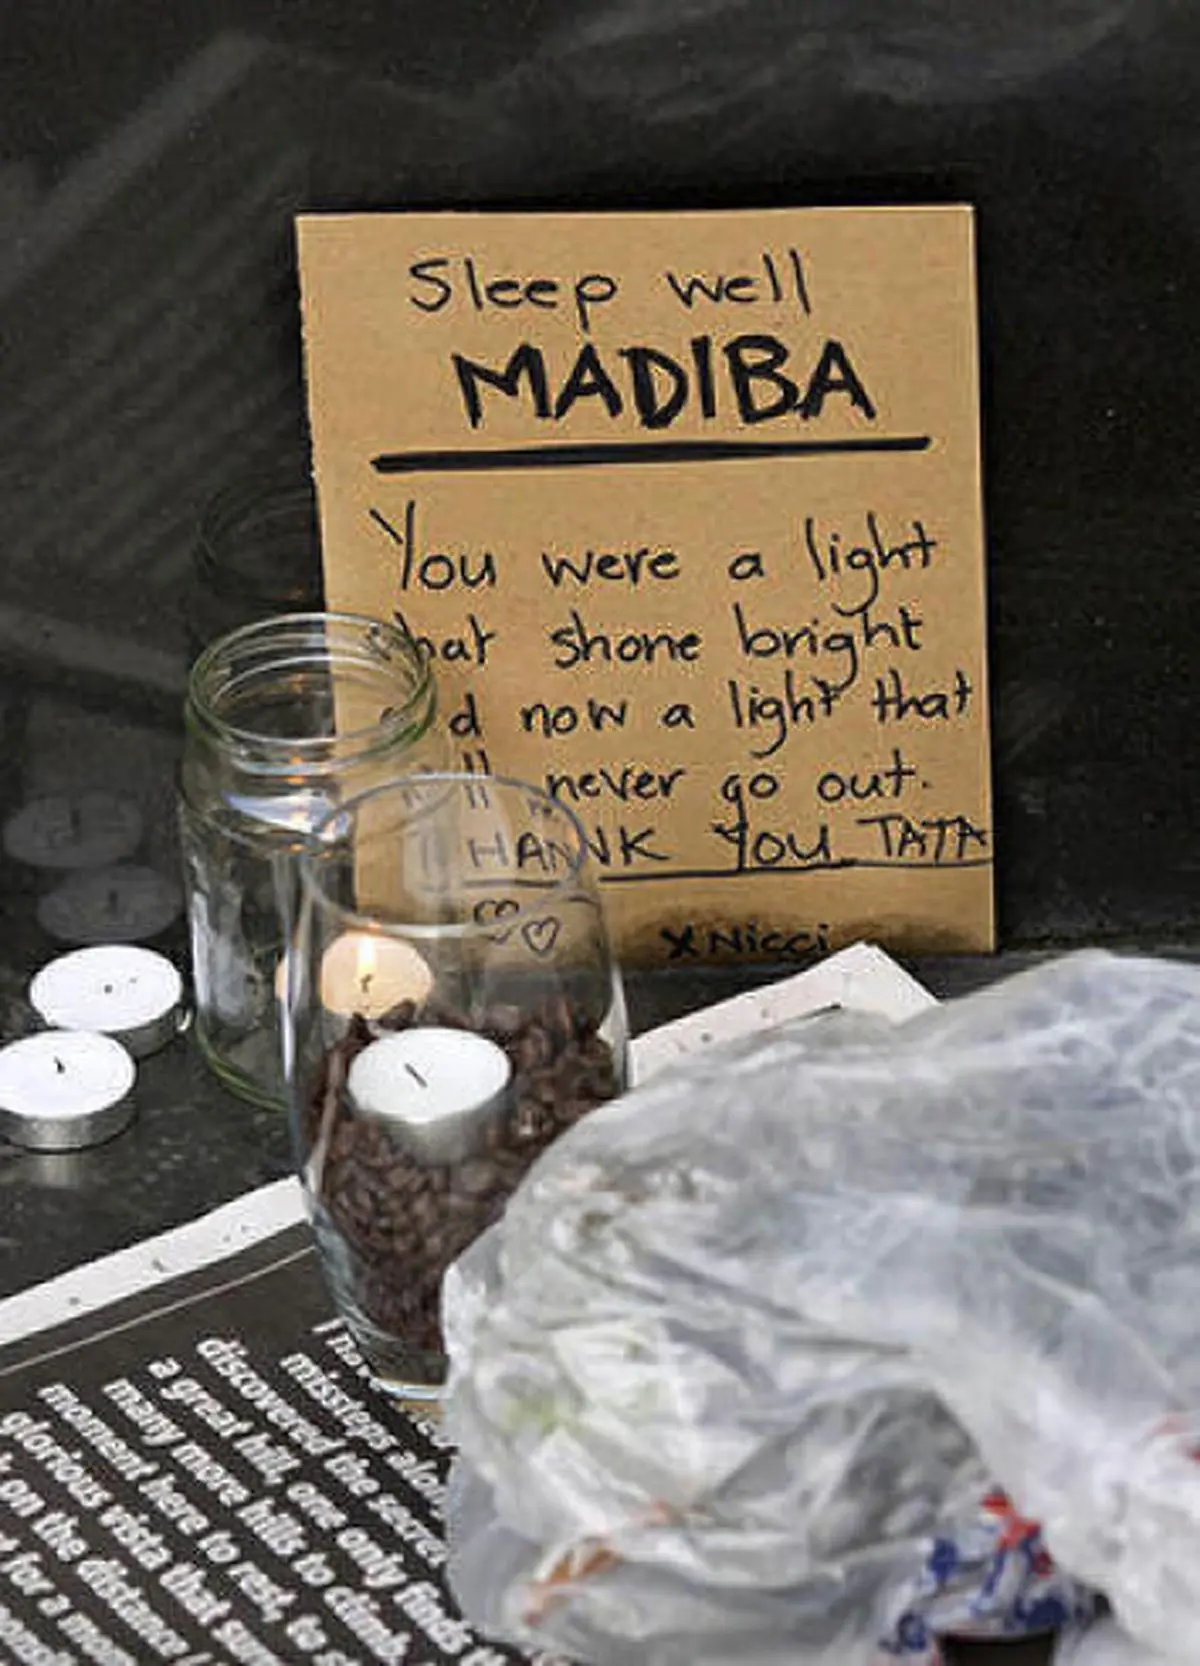 Sleep well
MADIBA
You were a light
that shone bright
and now a light that
will never go out.
THANK You TATA
x Nicci
missteps
discovered the secret
a great hill, one only finds
many more hills to climb.
moment here to rest, to
glorious vista that
on the distance I
for a mom